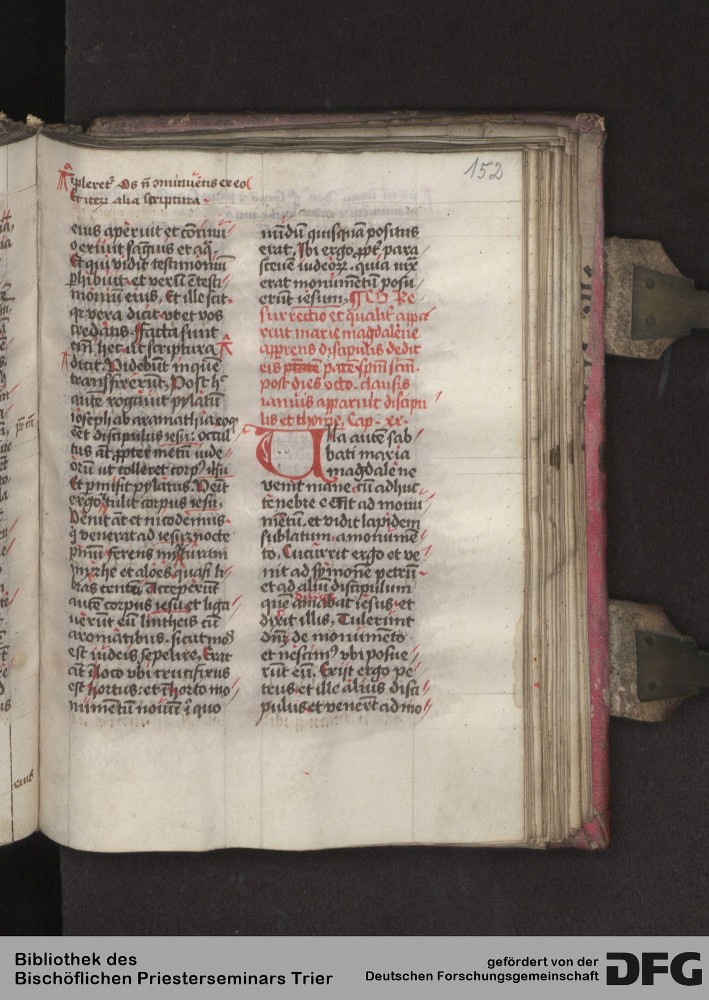 152
impleret᷑ Os nō ꝯminuetis ex eo
Et iteꝝ alia scriptura
eius aperuit et cōtinu
o exiuit sāguis et aq̄
Et qui vidit testimoniū
ꝑhibuit et verū ē testi
moniū eius, Et ille scit
qꝛ vera dicit vt et vos
credatis ffacta sunt
em̄ hec ut scriptura
dicit Videbūt in quē
transfixerūt, Post h̄
aūte rogauit pylatū
ioseph ab aramathia eo ꝙ
eēt discipulus iesu occul
tus āt ꝓpter metū iude
orū ut tolleret corpꝰ ihū
Et ꝑmisit pylatus Veīt
ergo ⁊ tulit corpus iesu,
Venit āt et nicodemus
q̇ venerat ad iesū nocte
pͥmū ferens mixturam
myrhe et aloes quasi li
bras centū, Acceperūt
autē corpus iesu et liga
uerūt eū lintheis cū
aromatibus sicut mos
est iudeis sepelire, Erat
āt ī loco vbi crucifixus
est hortus et ī horto mo
numētū nouū ī quo
nūdū quisquā positus
erat, Ibi ergo ꝓpt᷑ para
sceuē iudeoꝝ quia iuxͣ
erat monumētū posu
erūt iesum De Re
surrectio et qualit᷑ appa
ruit marie magdalene
apparens discipulis dedit
eis p̄tātē pacē spm̄ scm̄
post dies octo clausis
ianuis apparuit discipu
lis et thome, Cap xx
Una autē sab
bati maria
magdalene
venit mane cū adhuc
tenebre eēnt ad monu
mētū et vidit lapidem
sublatum a monumē
to, Cucurrit ergo et ve
nit ad symonē petrū
et ad aliū discipulum
quē amabat iesus et
dixit illis, Tulerūnt
dn̄m de monumēto
et nescimꝰ vbi posue
rūt eū. Exijt ergo pe
trus et ille alius disci
pulus et venert̄ ad mo
Bibliothek des
Bischöflichen Priesterseminars Trier
gefördert von der
Deutschen Forschungsgemeinschaft
DFG